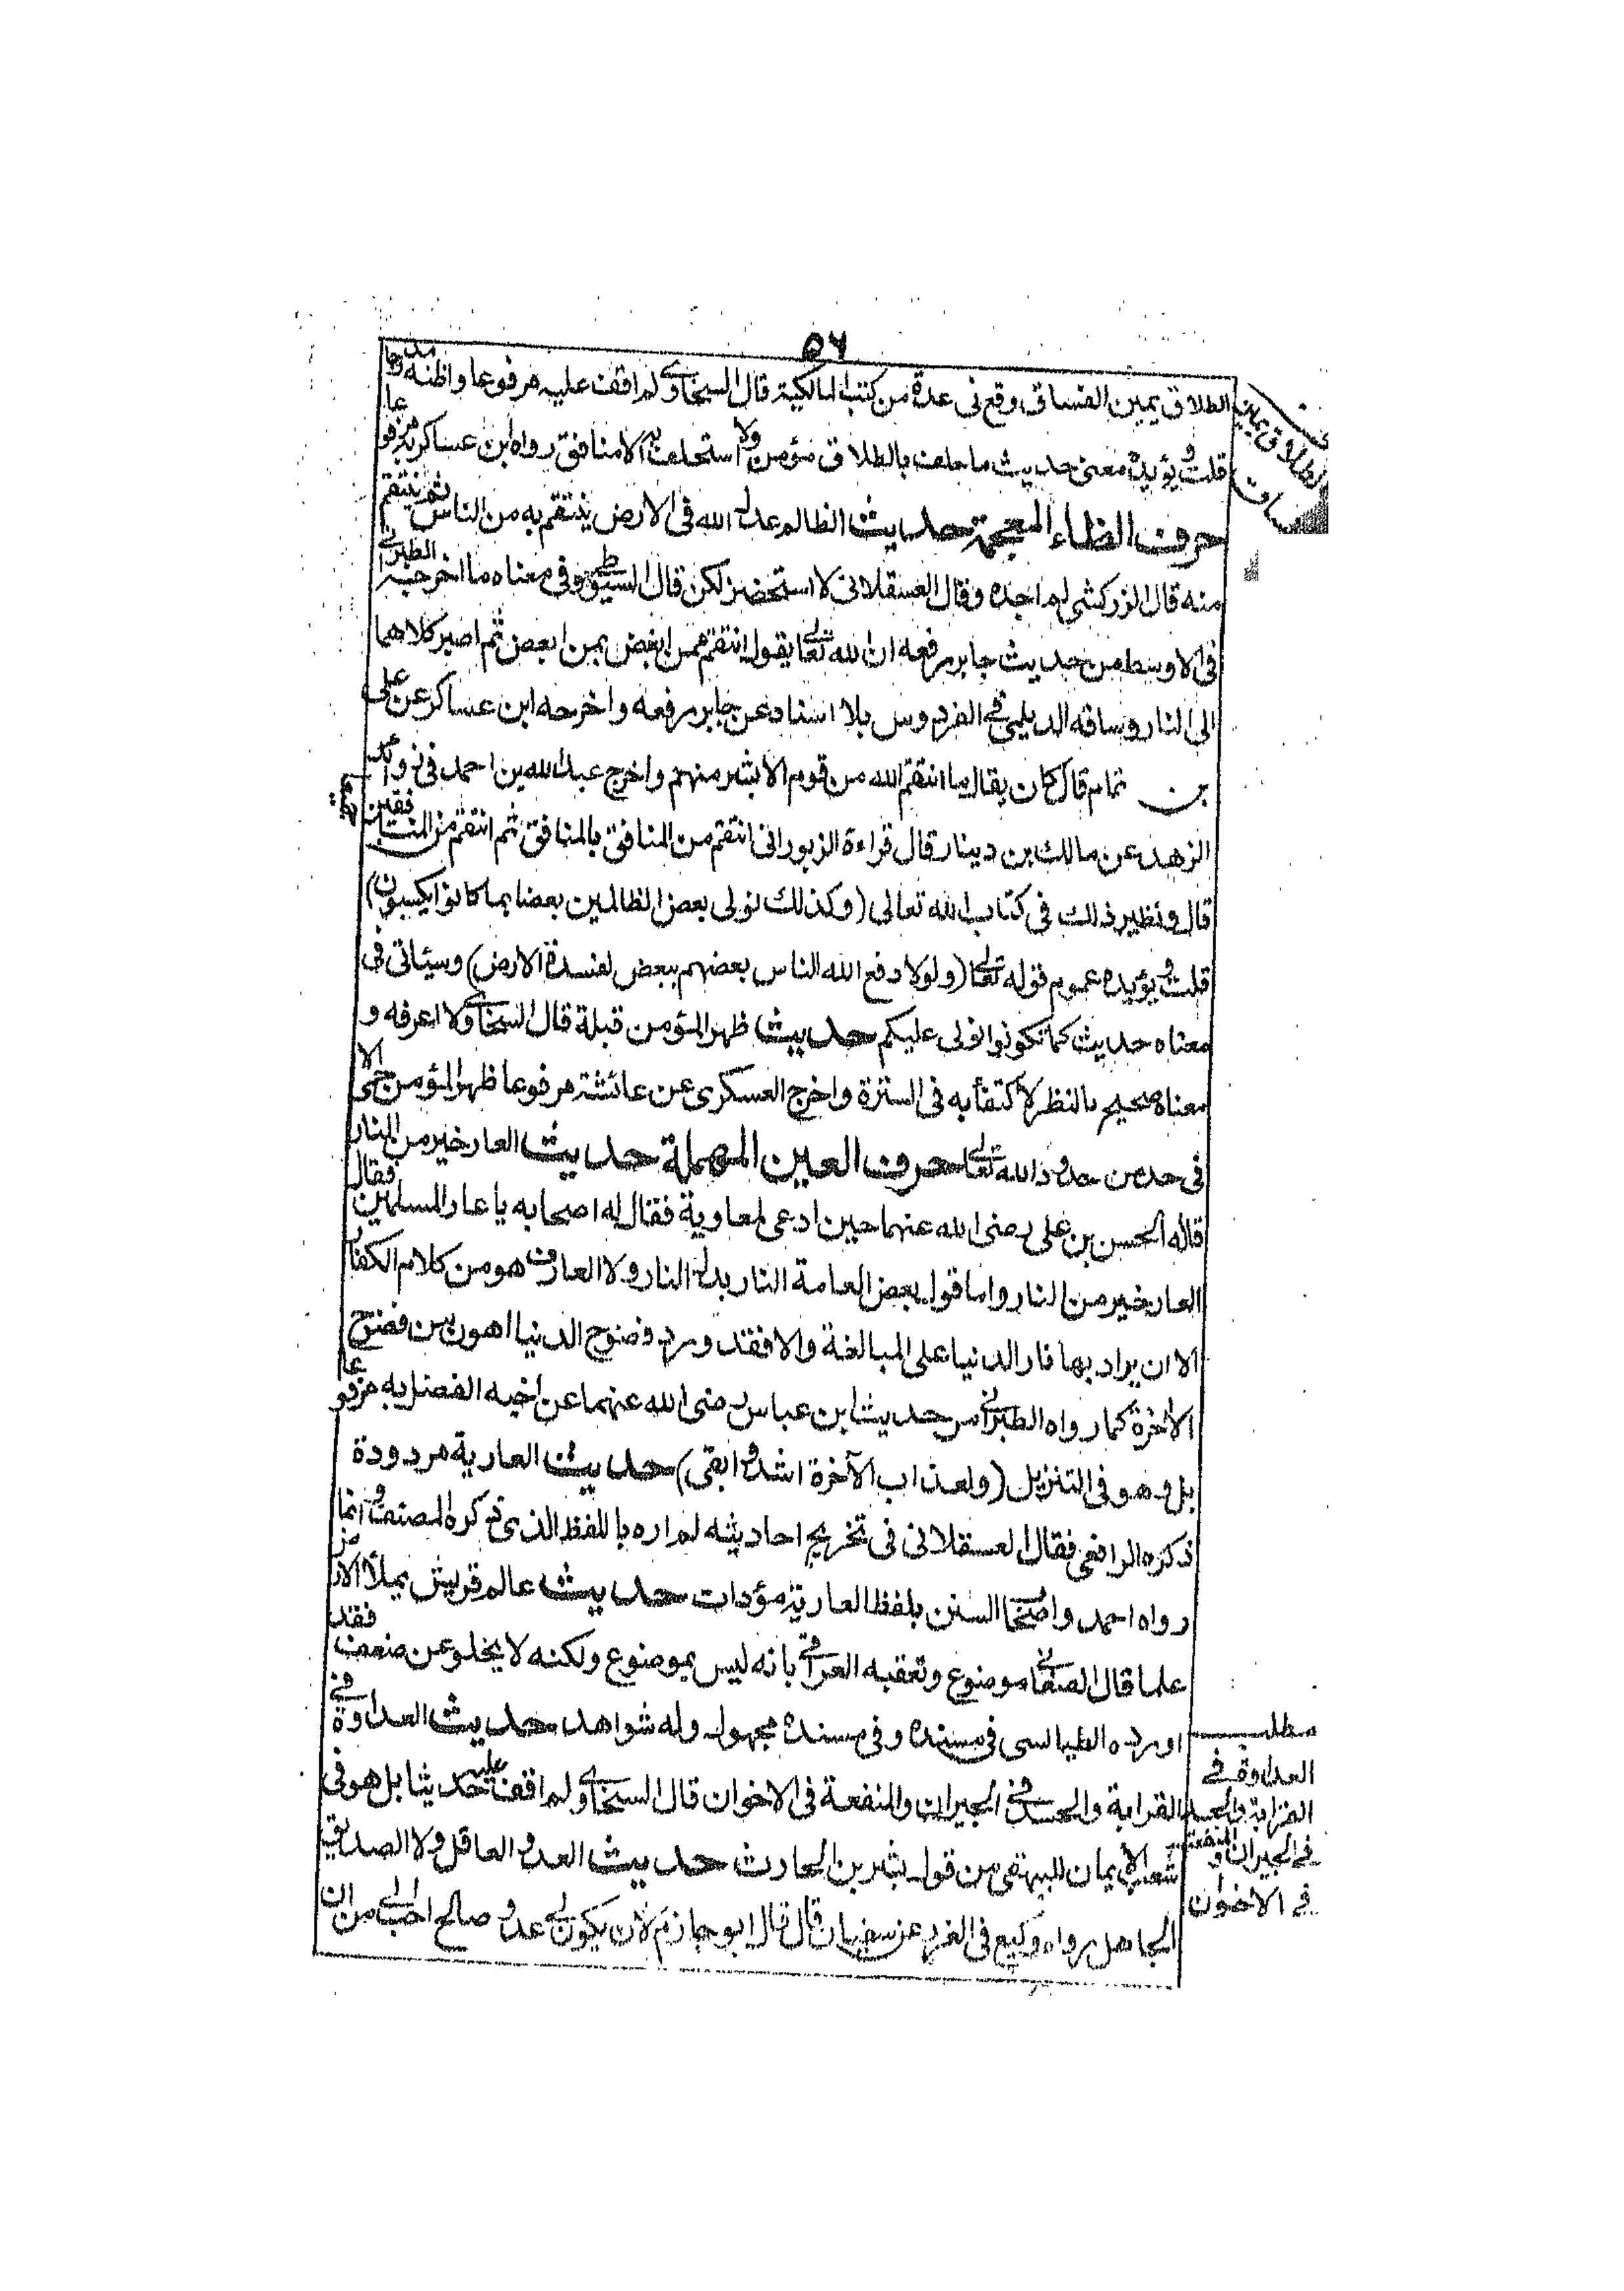 ٥٦
الطلاق يمين الفساق وقع فى عدة من كتب المالكية قال السخاوى لم اقف عليه مرفوعا واظنه مدرجا
قلت ويؤيده معنى حديث ما حلف بالطلاق مؤمن ولا استحلف به الا منافق رواه ابن عساكر مرفوعا
حرف الظاء المعجمة حديث الظالم عدل الله فى الارض ينتقم به من الناس ثم ينتقم
منه قال الزركشى لم اجده وقال العسقلانى لا استحضره لكن قال السيوطى وفى معناه ما اخرجه الطبرانى
فى الاوسط من حديث جابر رفعه ان الله تعالى يقول انتقم ممن ابغض بمن ابغض ثم اصير كلاهما
الى النار وساقه الديلمى فى الفردوس بلا اسناد عن جابر رفعه واخرجه ابن عساكر عن على
بن تمام قال كان يقال ما انتقم الله من قوم الا بشر منهم واخرج عبد الله بن احمد فى زوائد
الزهد عن مالك بن دينار قال قراءة الزبور انى انتقم من المنافق بالمنافق ثم انتقم من المنافقين
قال ونظير ذلك فى كتاب الله تعالى (وكذلك نولى بعض الظالمين بعضا بما كانوا يكسبون)
قلت ويؤيده عموم قوله تعالى (ولولا دفع الله الناس بعضهم ببعض لفسدة الارض) وسيئاتى فى
معناه حديث كما تكونوا نولى عليكم حديث ظهر المؤمن قبلة قال السخاوى لا اعرفه و
معناه صحيح بالنظر لاكتفأ به فى السترة واخرج العسكرى عن عائشة مرفوعا ظهر المؤمن حمى الا
فى حد من حدود الله تعالى حرف العين المهملة حديث العار خير من النار
قاله الحسن بن على رضى الله عنهما حين ادعى لمعاوية فقال له اصحابه يا عار المسلمين فقال
العار خير من النار واما قول بعض العامة النار بدل النار ولا العار فهو من كلام الكفار
الا ان يراد بها نار الدنيا على المبالغة والا فقد ورد فضوح الدنيا اهون من فضوح
الاخرة كما رواه الطبرانى من حديث ابن عباس رضى الله عنهما عن اخيه الفضل به مرفوعا
بل وهو فى التنزيل (ولعذاب الآخرة اشد وابقى) حديث العارية مردودة
ذكره الرافعى فقال العسقلانى فى تخريج احاديثه لم اره باللفظ الذى ذكره المصنف وانما
رواه احمد واصحاب السنن بلفظ العارية مؤدات حديث عالم قريش يملأ الارض
علما قال الصغانى موضوع وتعقبه العراقى بانه ليس بموضوع ولكنه لا يخلو عن ضعف فقد
اورده الطيالسى فى مسنده وفى مسنده مجهول وله شواهد حديث العداوة فى
القرابة والحسد فى الجيران والمنفعة فى الاخوان قال السخاوى لم اقف عليه حديثا بل هو فى
شعب الايمان للبيهقى من قول بشر بن الحارث حديث العدو العاقل ولا الصديق
الجاهل رواه وكيع فى الغرر عن سفيان قال قال ابو حازم لان يكون لى عدو صالح احب الى من ان
مطلب
العداوة فى
القرابة والحسد
فى الجيران والمنفعة
فى الاخوان